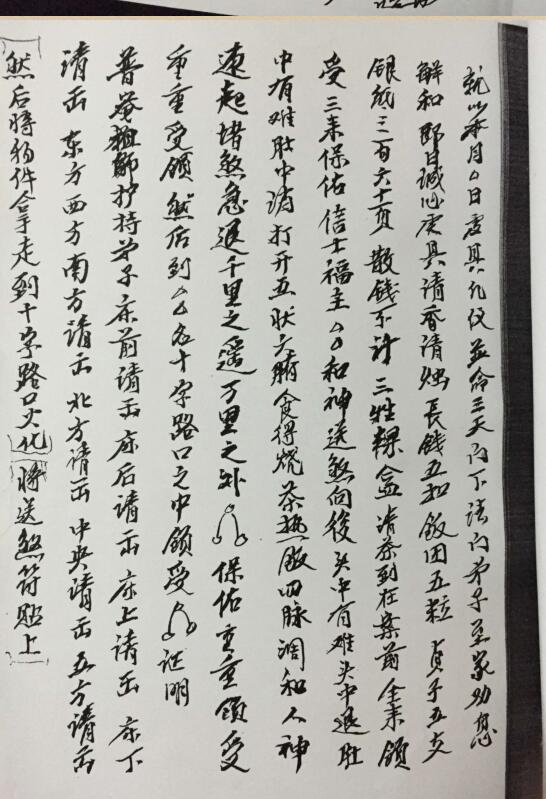 就以本月厶日虔具凡仪并命三天门下请问弟子至家劝息
解和即日诚心虔具清香清烛長钱五扣飯团五粒貞子五支
银纸三百六十頁散钱不计三牲粿盒清茶到在案前全来領
受三来保佑信士福主厶厶和神送煞向後头中有难头中退肚
中有难肚中消打开五状六腑食得燒茶热飯四脉調和人神
速起堵煞急退千里之遥万里之外保佑重重領受
重重受领然后到厶厶名十字路口之中領受証明
普庵祖師护持弟子床前請出床后請出床上請出床下
請出东方西方南方請出北方請出中央請出五方請出
然后將物件拿走到十字路口火化將送煞符貼上